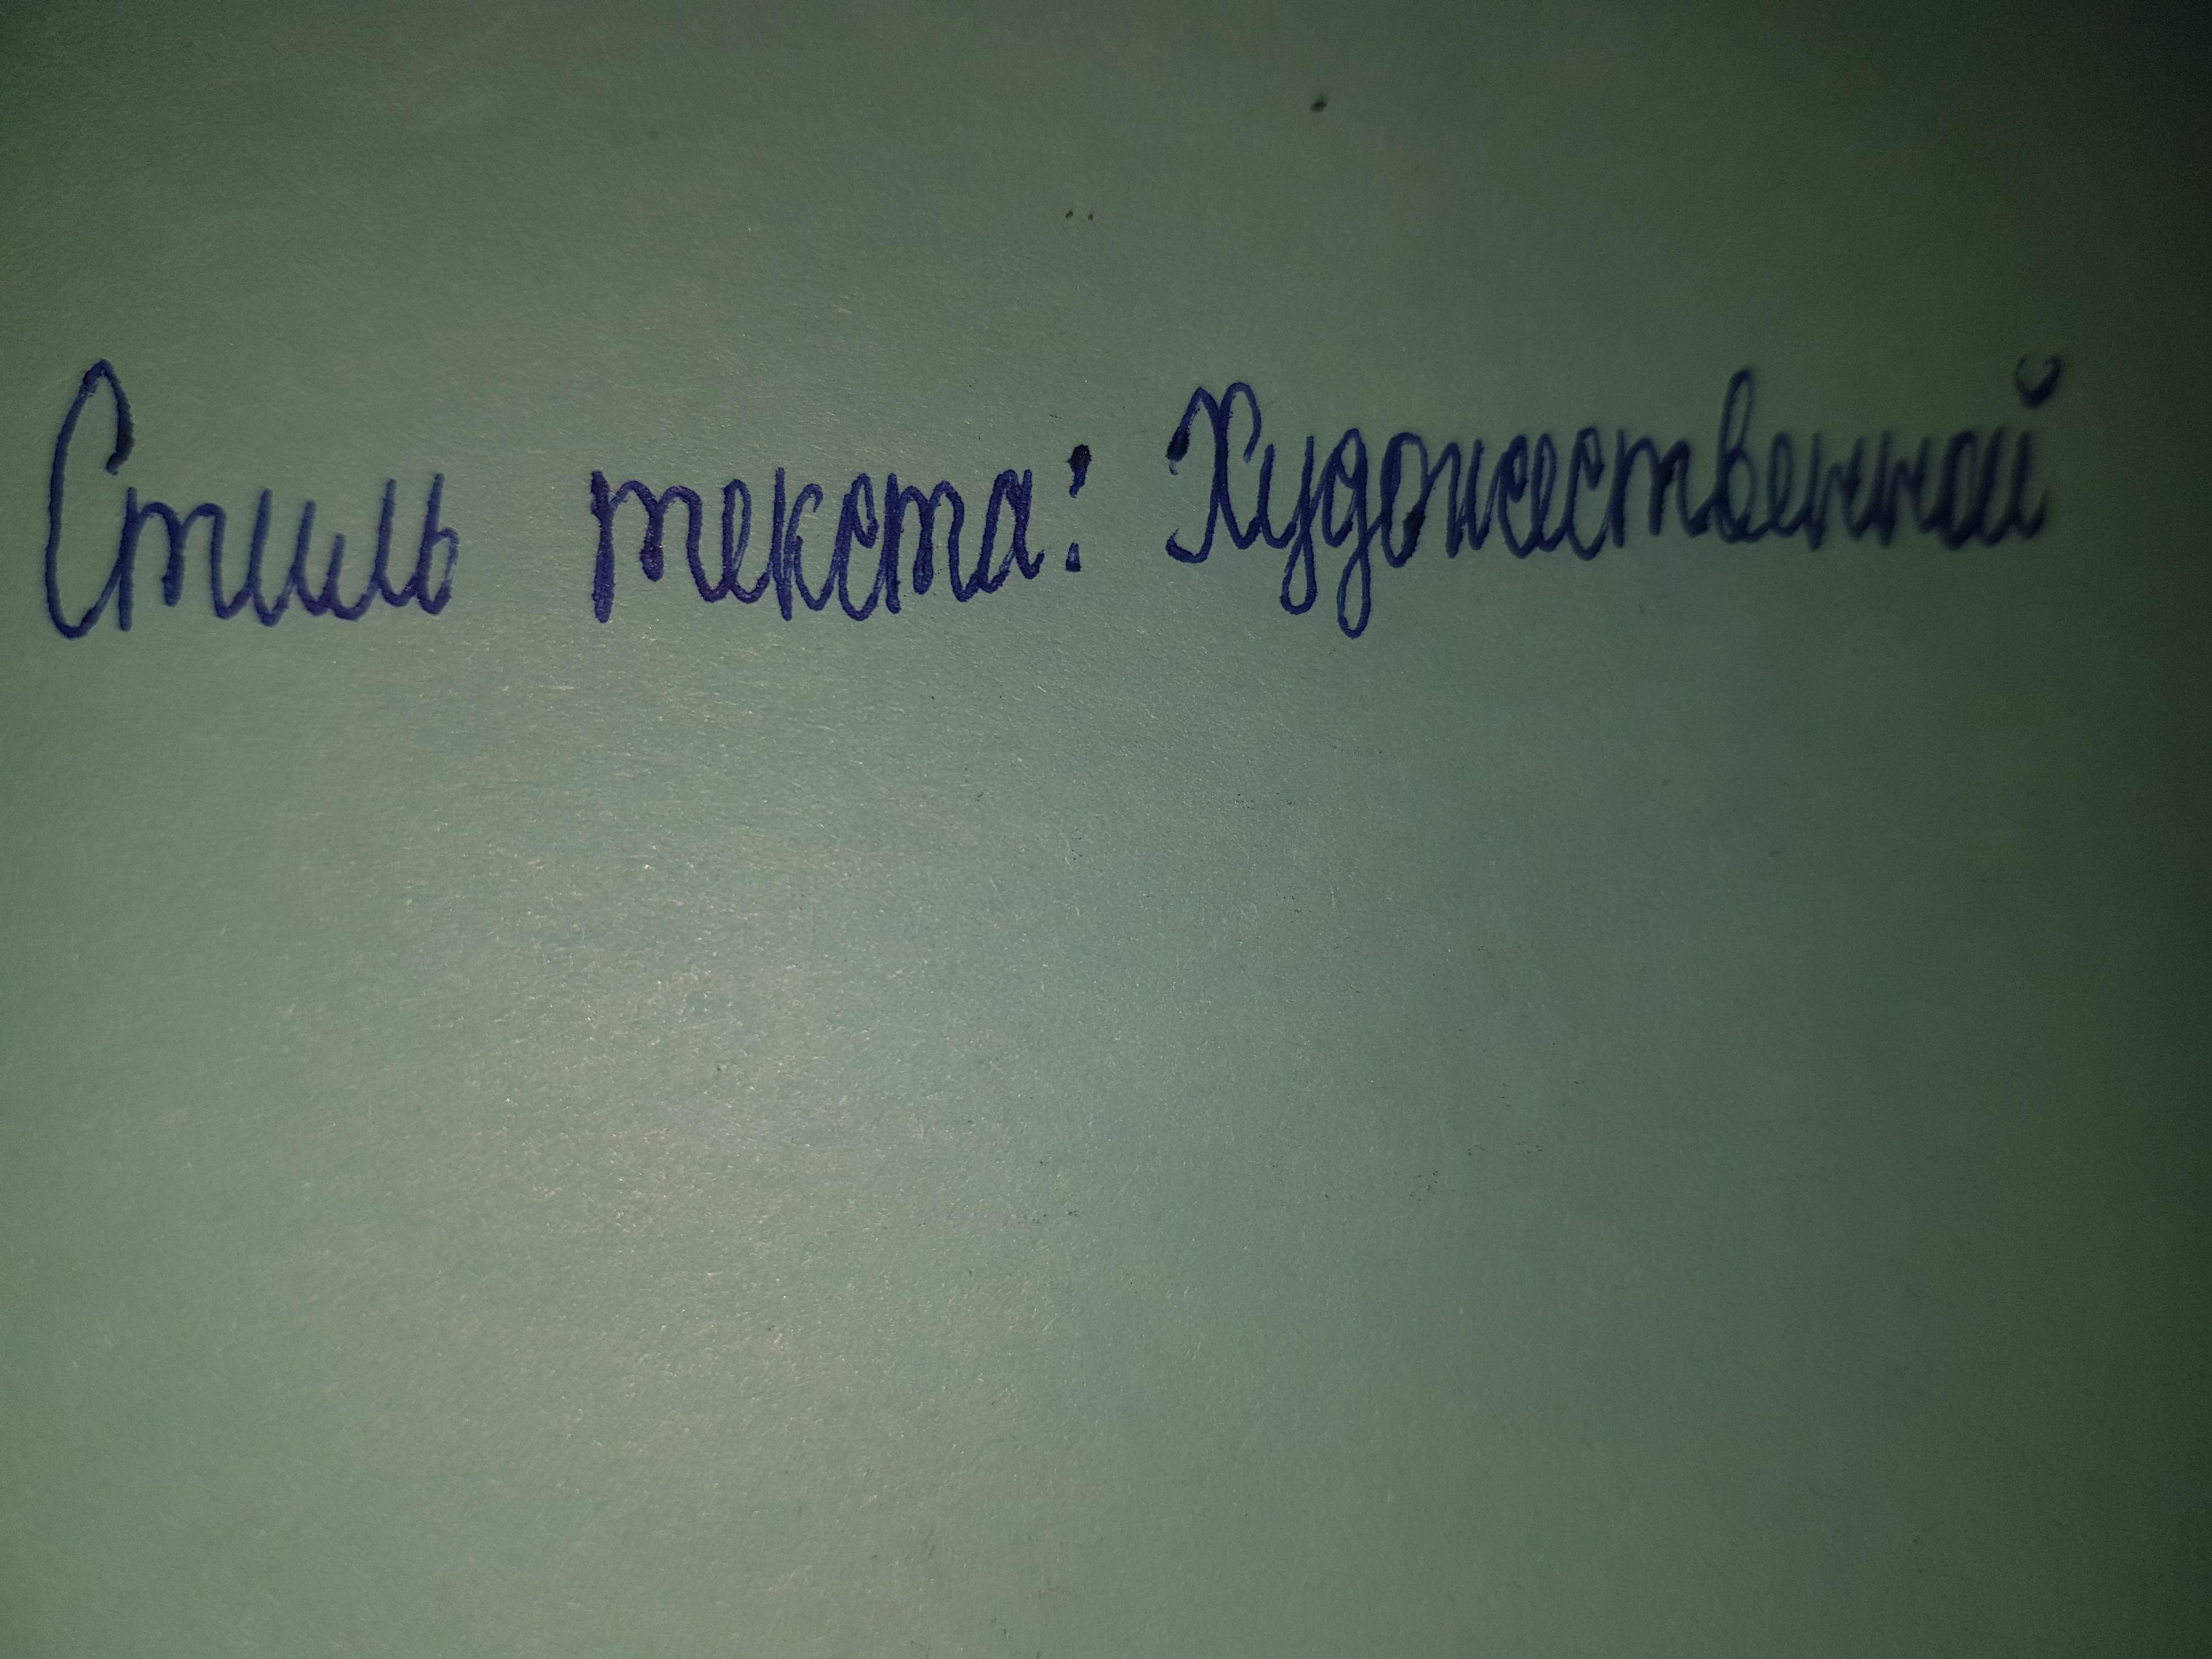 Стиль текста: Художественной